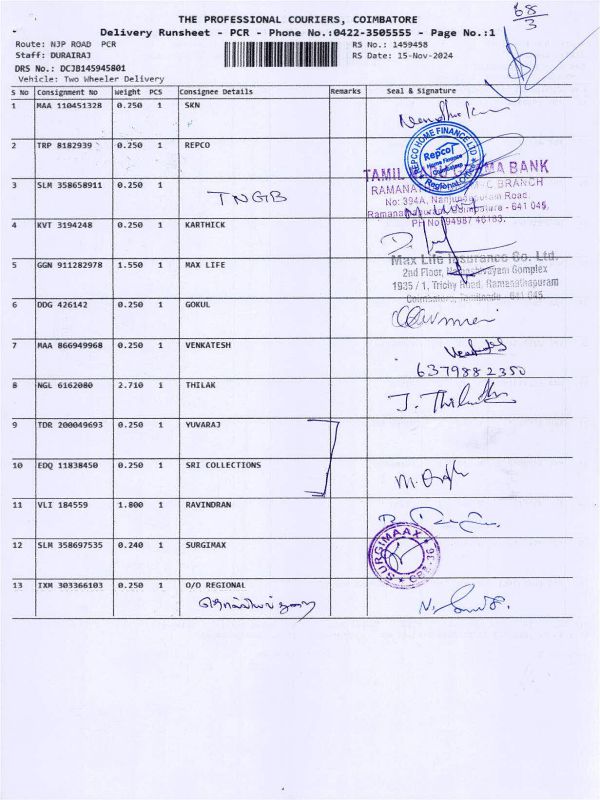 68/3
THE PROFESSIONAL COURIERS, COIMBATORE
Delivery Runsheet - PCR - Phone No.:0422-3505555 - Page No.:1
Route: NJP ROAD PCR RS No.: 1459458
Staff: DURAIRAJ RS Date: 15-Nov-2024
DRS No.: DCJB145945801
Vehicle: Two Wheeler Delivery
S No Consignment No Weight PCS Consignee Details Remarks Seal & Signature
1 MAA 110451328 0.250 1 SKN
2 TRP 8182939 0.250 1 REPCO
REPCO HOME FINANCE LTD
Repco Home Finance
Regional Office
3 SLM 358658911 0.250 1 TNGB
BANK
BRANCH
No: 394A, Nanjundapuram Road,
641 045.
4 KVT 3194248 0.250 1 KARTHICK
5 GGN 911282978 1.550 1 MAX LIFE
Max Life Insurance Co. Ltd.
2nd Floor, Complex
1935 / 1, Trichy Road, Ramanathapuram
Coimbatore, Tamilnadu - 641 045.
6 DDG 426142 0.250 1 GOKUL
7 MAA 866949968 0.250 1 VENKATESH
6379882350
8 NGL 6162080 2.710 1 THILAK
9 TDR 200049693 0.250 1 YUVARAJ
10 EDQ 11838450 0.250 1 SRI COLLECTIONS
11 VLI 184559 1.800 1 RAVINDRAN
12 SLM 358697535 0.240 1 SURGIMAX
SURGIMAAX
13 IXM 303366103 0.250 1 O/O REGIONAL